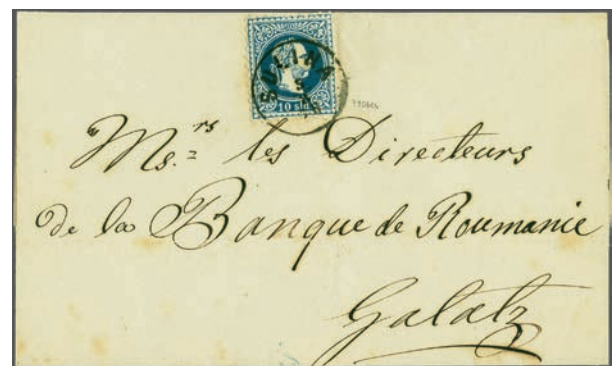 SULINA
10 sld
Ms.rs les Directeurs
de la Banque de Roumanie
Galatz